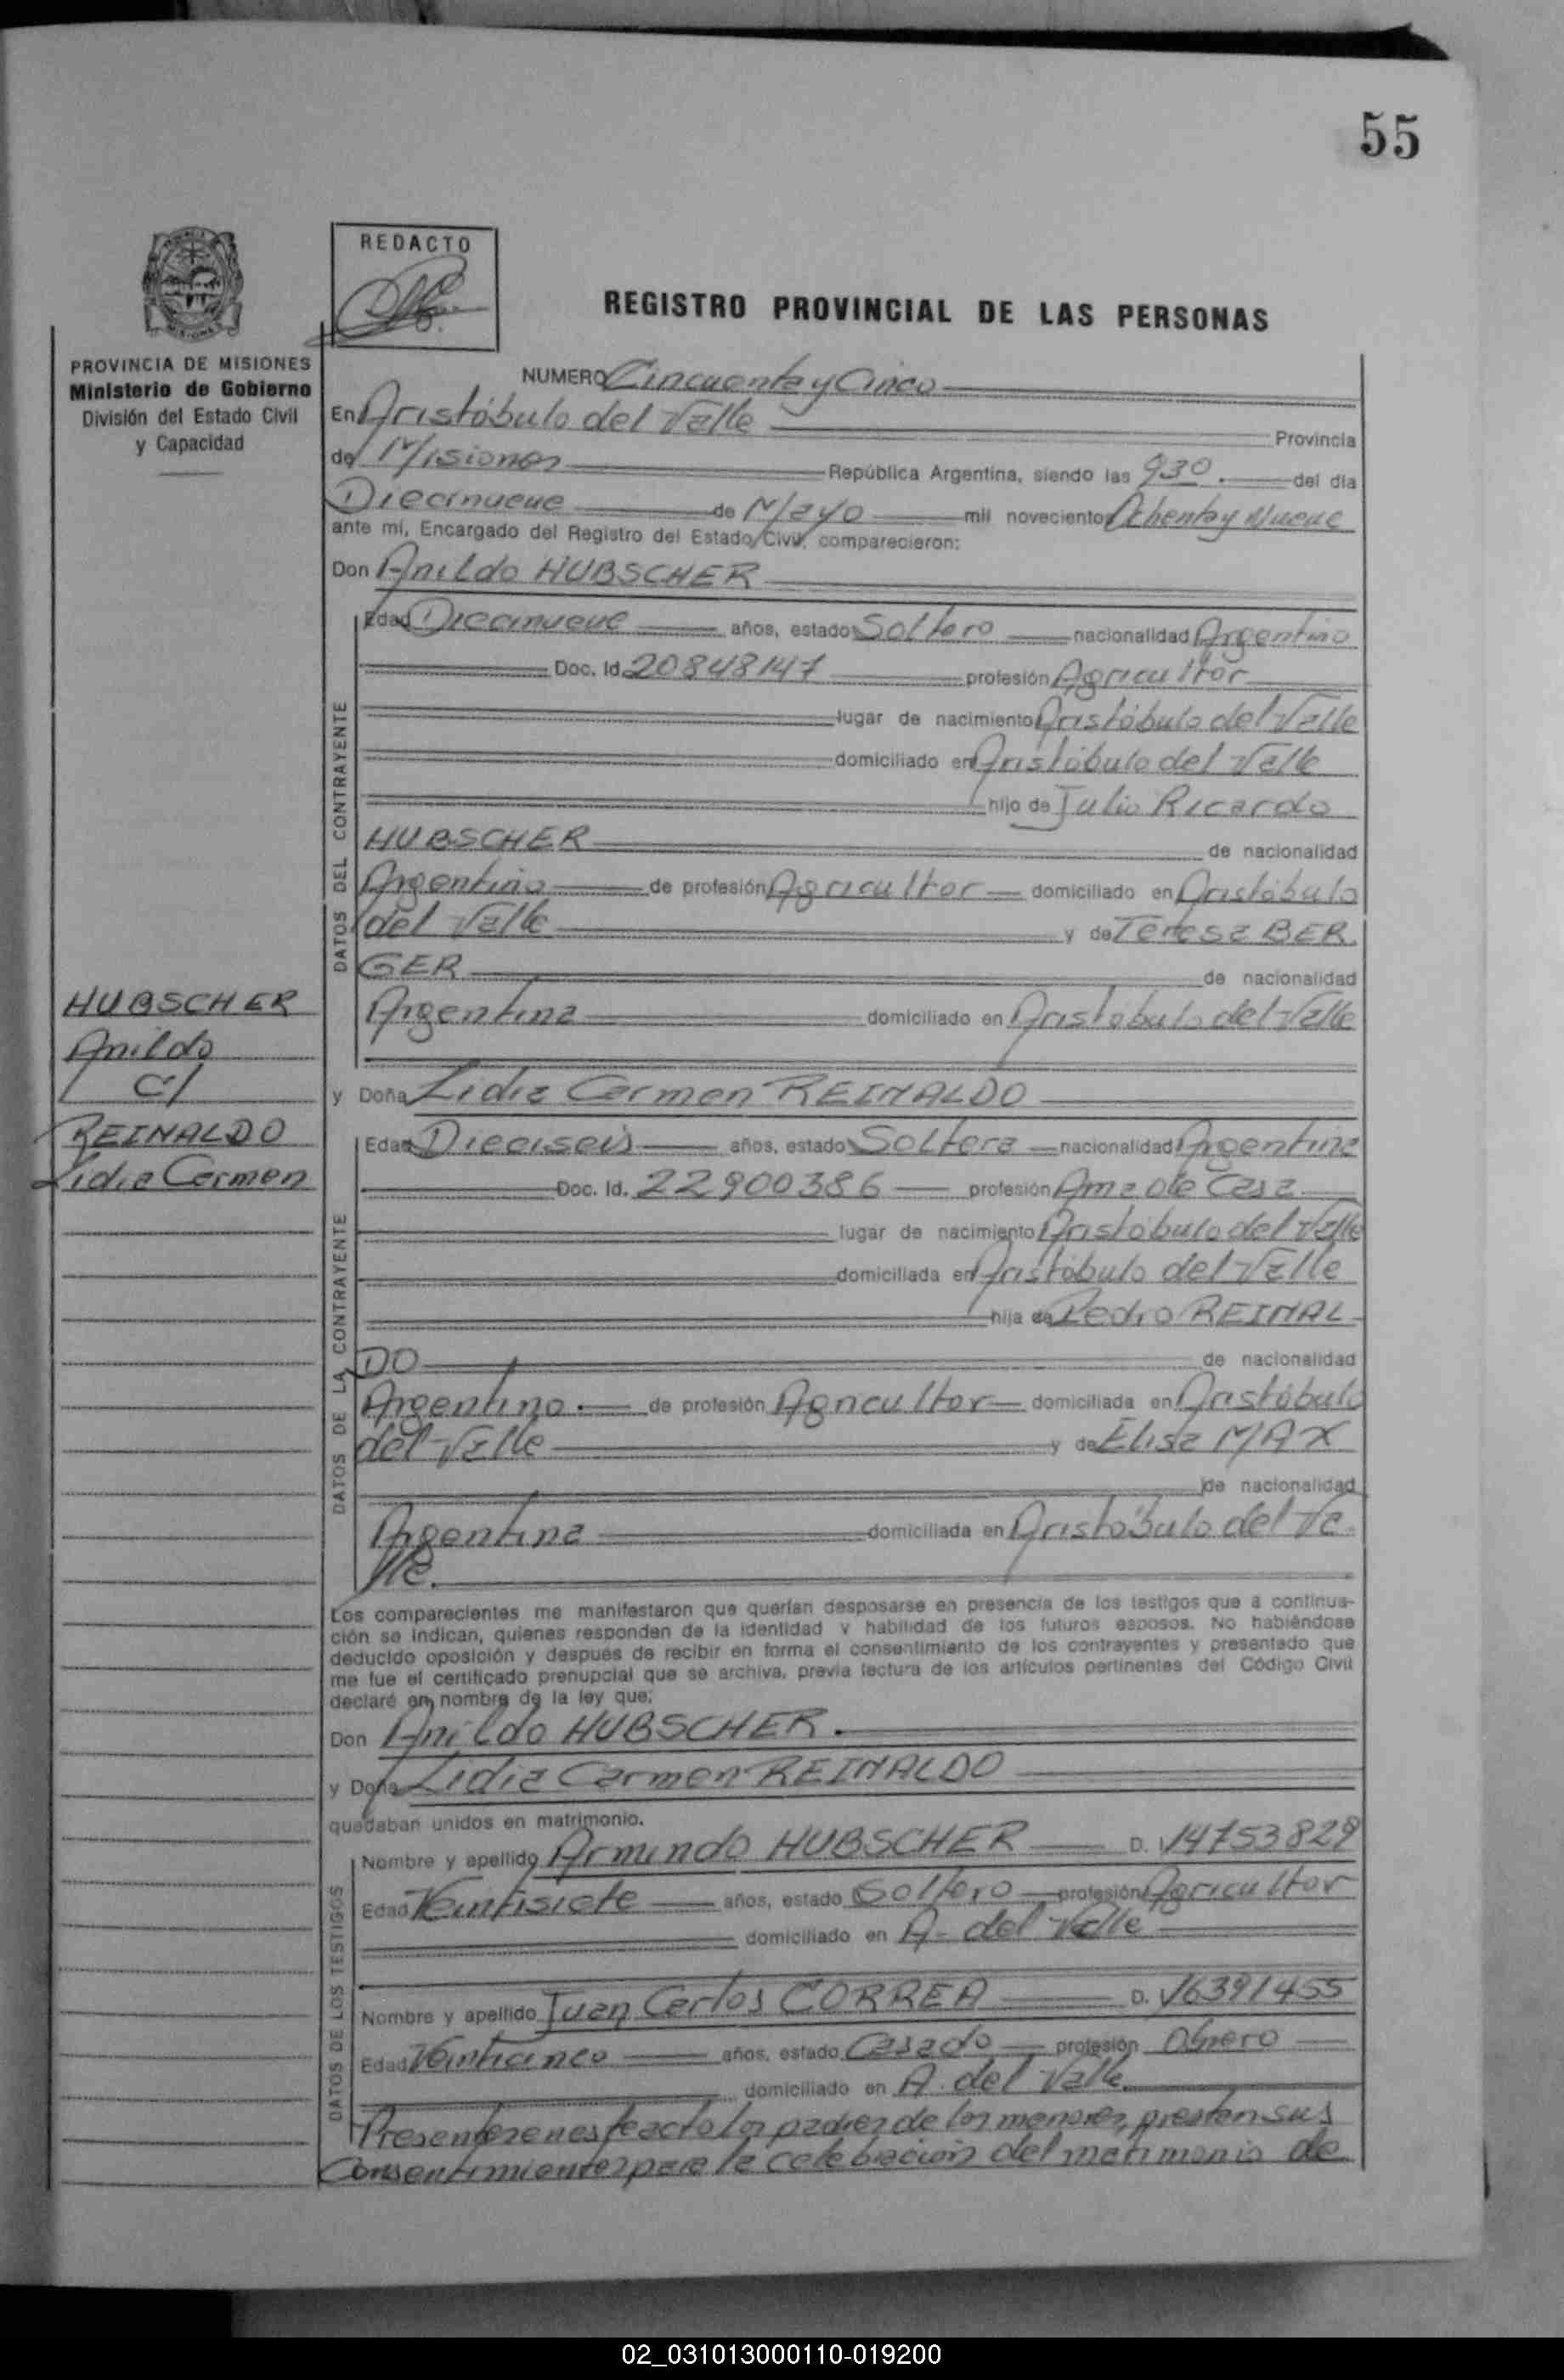 55
REDACTO
REGISTRO PROVINCIAL DE LAS PERSONAS
PROVINCIA DE MISIONES
Ministerio de Gobierno
División del Estado Civil
y Capacidad
NUMERO Cincuenta y Cinco
En Aristóbulo del Valle Provincia
de Misiones República Argentina, siendo las 930 del día
Diecinueve de Mayo mil novecientos Ochenta y Nueve
ante mí, Encargado del Registro del Estado Civil, comparecieron:
Don Anildo HUBSCHER
Edad Diecinueve años, estado Soltero nacionalidad Argentino
Doc. Id. 20848147 profesión Agricultor
lugar de nacimiento Aristóbulo del Valle
domiciliado en Aristóbulo del Valle
hijo de Julio Ricardo
HUBSCHER de nacionalidad
Argentino de profesión Agricultor domiciliado en Aristóbulo
del Valle y de Teresa BER
GER de nacionalidad
Argentina domiciliado en Aristobulo del Valle
DATOS DEL CONTRAYENTE
HUBSCHER
Anildo
C/
REINALDO
Lidia Carmen
y Doña Lidia Carmen REINALDO
Edad Dieciseis años, estado Soltera nacionalidad Argentina
Doc. Id. 22900386 profesión Ama de Casa
lugar de nacimiento Aristóbulo del Valle
domiciliada en Aristóbulo del Valle
hija de Pedro REINAL
DO de nacionalidad
Argentino de profesión Agricultor domiciliada en Aristóbulo
del Valle y de Elisa MAX
de nacionalidad
Argentina domiciliada en Aristóbulo del Va
lle.
DATOS DE LA CONTRAYENTE
Los comparecientes me manifestaron que querían desposarse en presencia de los testigos que a continua-
ción se indican, quienes responden de la identidad y habilidad de los futuros esposos. No habiéndose
deducido oposición y después de recibir en forma el consentimiento de los contrayentes y presentado que
me fue el certificado prenupcial que se archiva, previa lectura de los artículos pertinentes del Código Civil
declaré en nombre de la ley que:
Don Anildo HUBSCHER.
y Doña Lidia Carmen REINALDO
quedaban unidos en matrimonio.
Nombre y apellido Armindo HUBSCHER D. I. 14753829
Edad Veintisiete años, estado Soltero profesión Agricultor
domiciliado en A. del Valle
Nombre y apellido Juan Carlos CORREA D. 16391455
Edad Veinticinco años, estado Casado profesión Obrero
domiciliado en A. del Valle
DATOS DE LOS TESTIGOS
Presentes en este acto los padres de los menores, prestan sus
Consentimientos para la celebración del matrimonio de
02_031013000110-019200